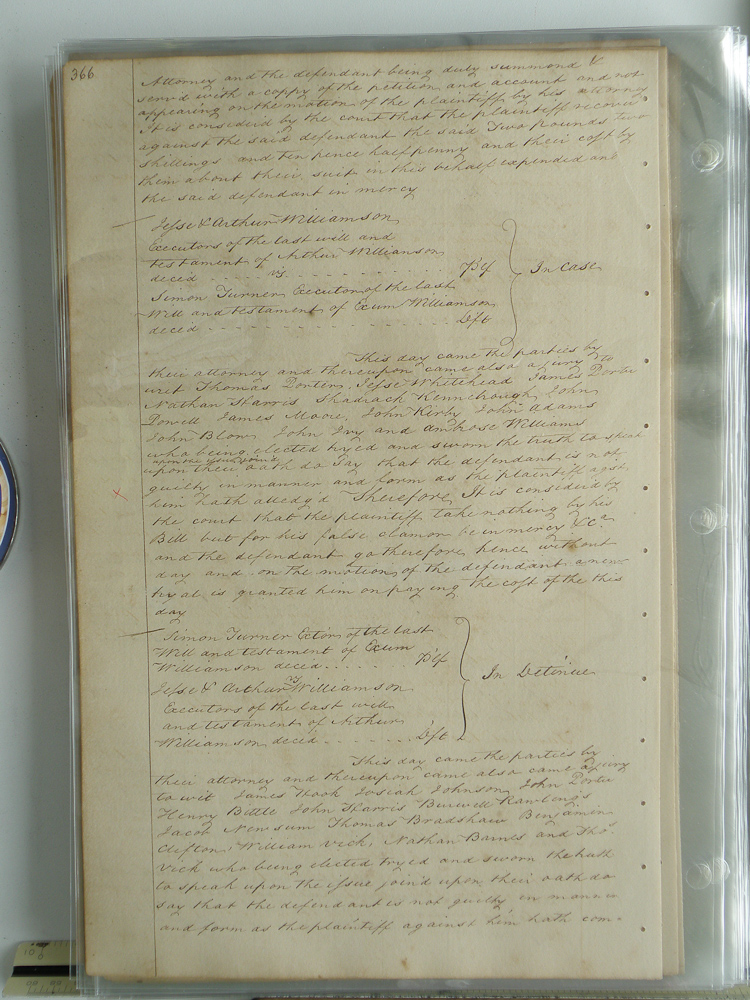 366
Attorney and the defendant being duly summond &
servd with a coppy of the petition and account and not
appearing on the motion of the plaintiff by his attorney
It is considerd by the court that the plaintiff recover
against the said defendant the said Two pounds two
shillings and ten pence half penny and their cost by
them about their suit in this behalf expended and
the said defendant in mercy
Jesse & Arthur Williamson
Executors of the last will and
testament of Arthur Williamson
decid vs. Plf In Case
Simon Turner Executor of the last
Will and testament of Exum Williamson
decid Dft
This day came the parties by
their attorney and thereupon came also a jury to
wit Thomas Porter, Jesse Whitehead James Porter
Nathan Harris Shadrack John
Powell James Moore, John Kirby John Adams
John Blow John Ivy and Ambrose Williams
who being elected tryed and sworn the truth to speak
upon the issue joind
upon their oath do say that the defendant is not
guilty in manner and form as the plaintiff agst
him hath alledg'd Therefore It is considerd by
the court that the plaintiff take nothing by his
Bill but for his false clamor be in mercy &Ca
and the defendant go thereof hence without
day and on the motion of the defendant a new
tryal is granted him on paying the cost of the this
day
Simon Turner Exttor of the last
Will and testament of Exum
Williamson decid Plf
vs
Jesse & Arthur Williamson In Detinue
Executors of the last will
and testament of Arthur
Williamson decid Dft
This day came the parties by
their attorney and thereupon came also came a jury
to wit James Hook Josiah Johnson John Porter
Henry Bittle John Harris Burwell Rawlings
Jacob Newsum Thomas Bradshaw Benjamin
Clifton William Vick, Nathan Barnes and Tho.
Vick who being elected tryed and sworn the truth
to speak upon the issue joind upon their oath do
say that the defendant is not guilty in manner
and form as the plaintiff against him hath com-